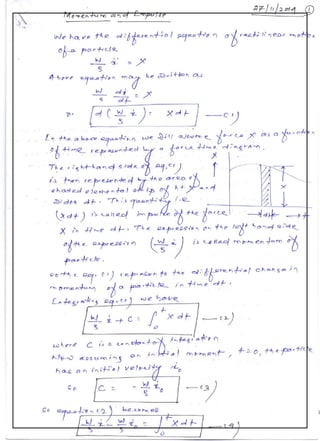 27/11/2014 1
Momentum and Impulse
We have the differential equation of rectilinear motion
of a particle
W/g ẍ = X
Above equation may be written as
W/g dẋ/dt = X
or d(W/g ẋ) = X dt —(1)
In the above equation we will assume force X as a function
of time represented by a force time diagram.
The right hand side of eq.(1) X
is then represented by the area of
shaded elemental strip of ht X and X
width dt. This quantity i.e.
(X dt) is called impulse of the force dt t
X in time dt. The expression on the left hand side
of the expression (W/g ẋ) is called momentum of
particle.
So the eq. (1) represents the differential change in
momentum of a particle in time dt.
Integrating eq.(1) we have
W/g ẋ + C = ∫₀ᵗ X dt —(2)
where C is a constant of integration
Now assuming an initial moment, t = 0, the particle
has an initial velocity ẋ₀
So C = - W/g ẋ₀ —(3)
So equation (2) becomes
W/g ẋ - W/g ẋ₀ = ∫₀ᵗ X dt —(4)